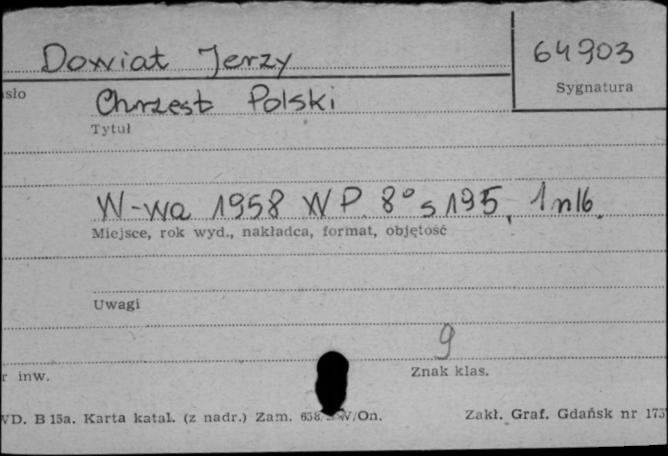 Dowiat Jerzy 64903
Sygnatura
asło
Chrzest Polski
Tytuł
W-wa 1958 WP. 8° s 195, 1 nlb.
Miejsce, rok wyd., nakładca, format, objętość
Uwagi
9
r inw. Znak klas.
WD. B 15a. Karta katal. (z nadr.) Zam. W/On. Zakł. Graf. Gdańsk nr 175